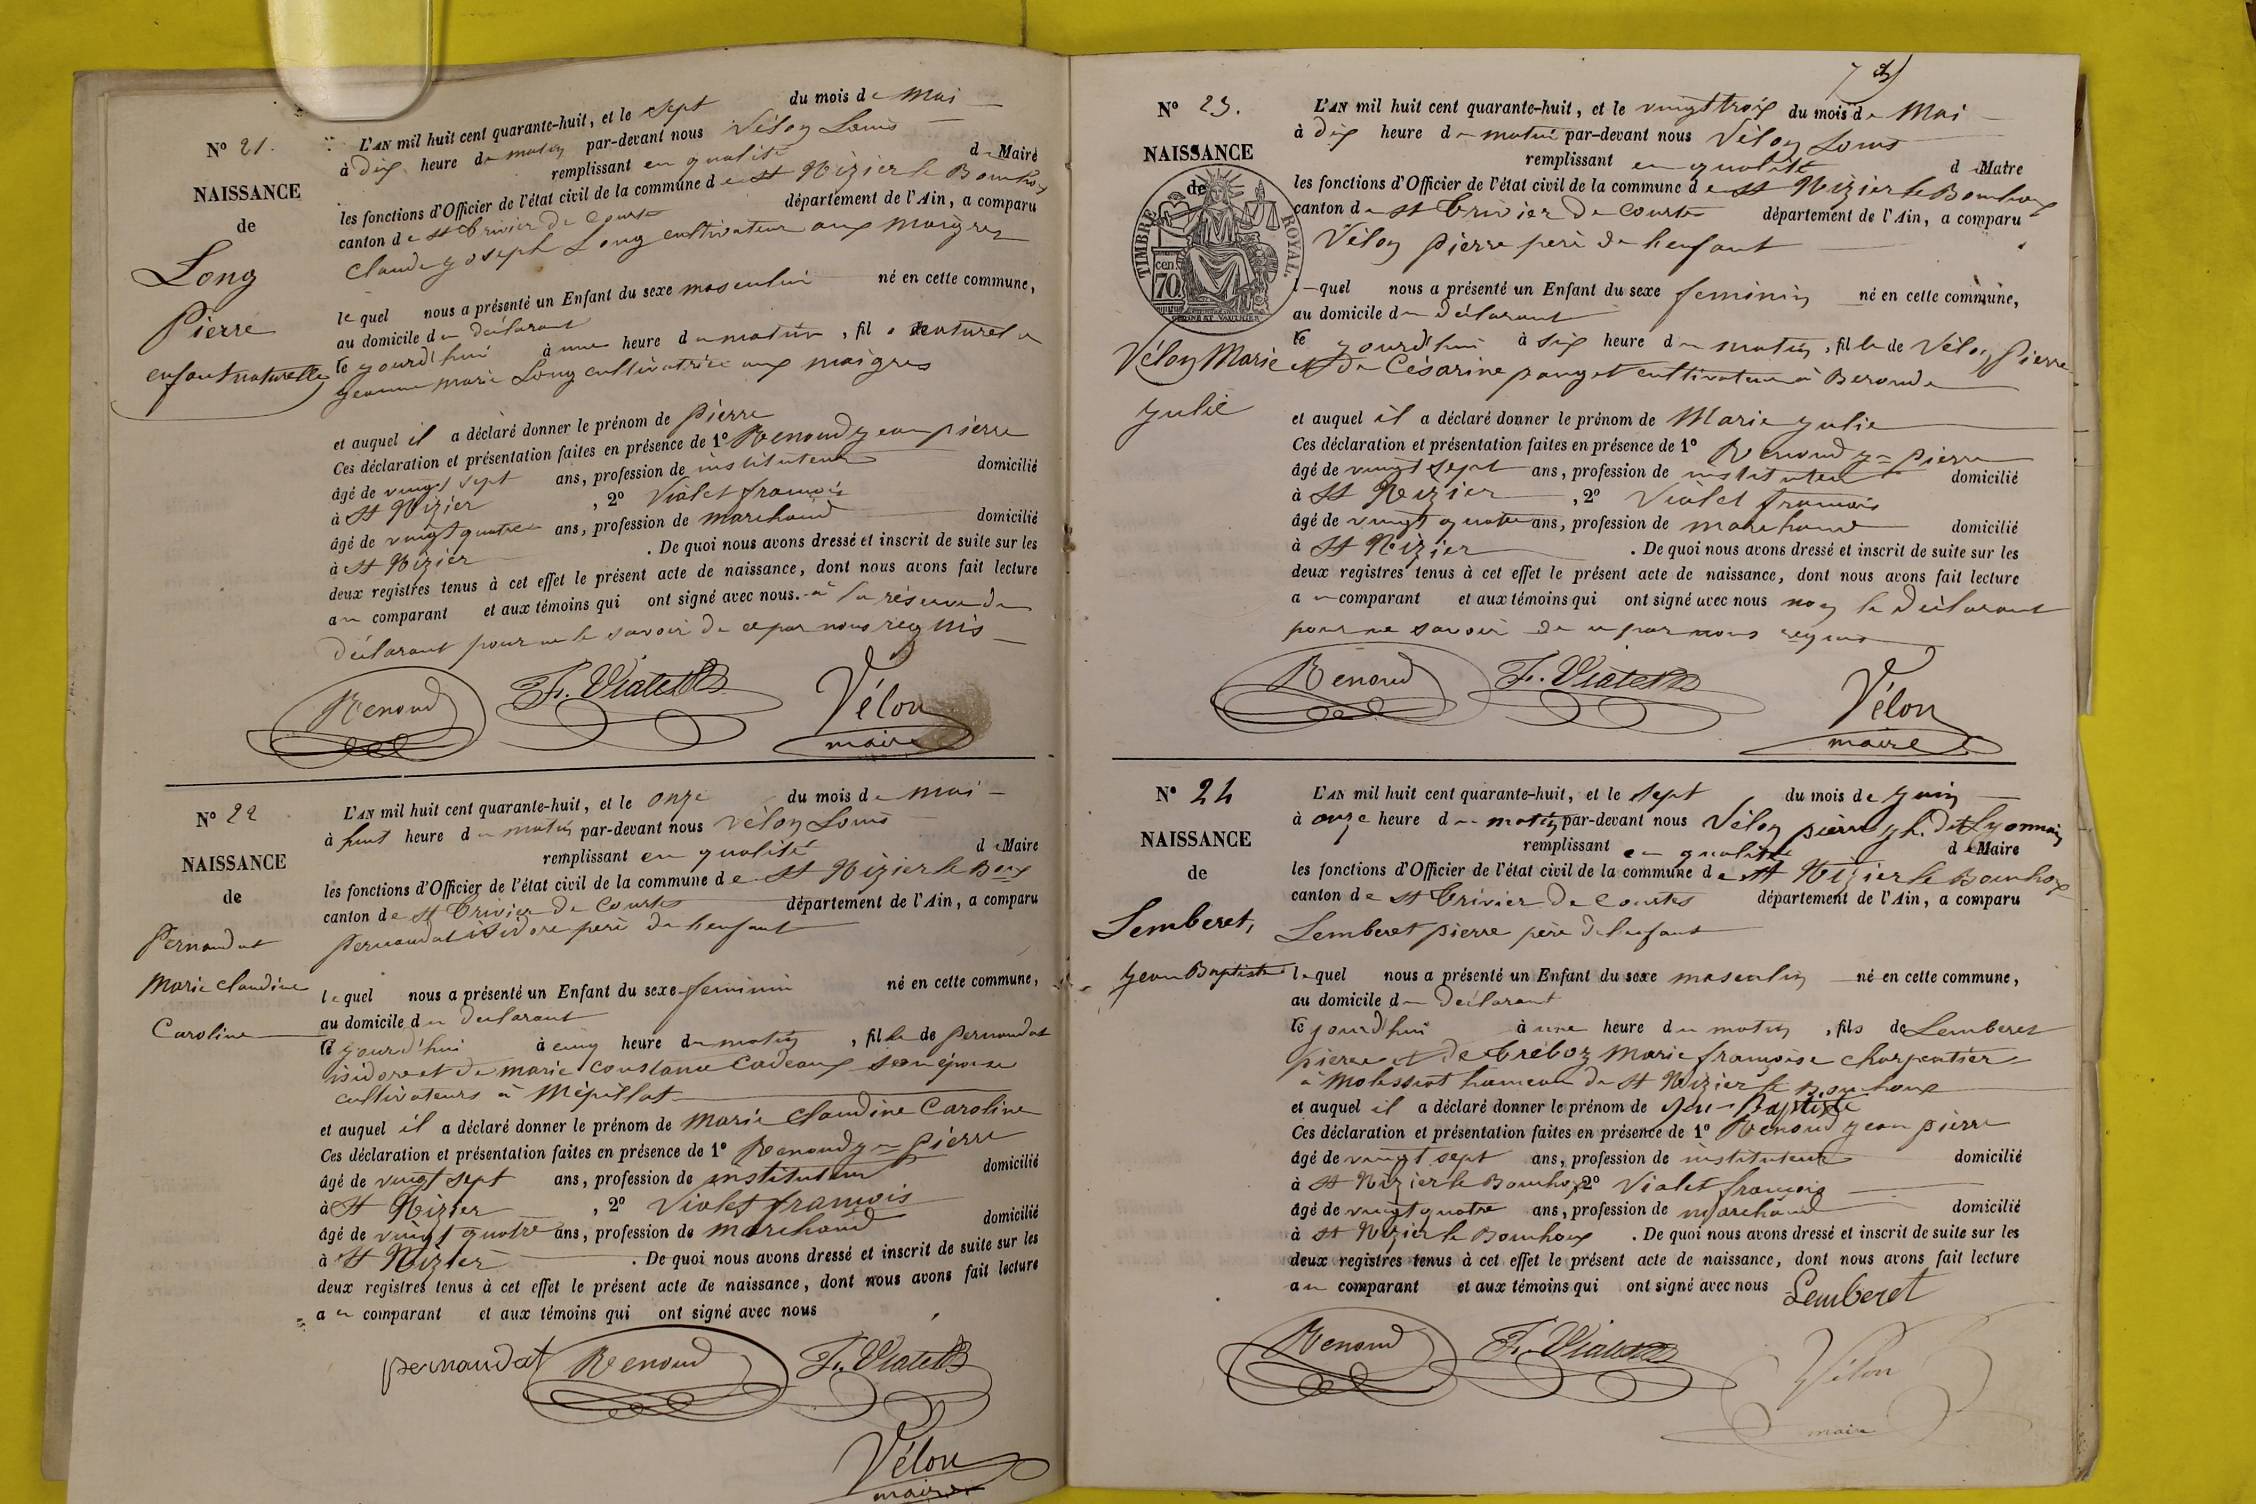 N° 21.
NAISSANCE
de
Long
Pierre
enfant naturelle
L'AN mil huit cent quarante-huit, et le sept du mois de Mai
à dix heure du matin par-devant nous Vélon Louis
remplissant en qualité de Maire
les fonctions d'Officier de l'état civil de la commune de St Nizier le Bouhoux
canton de St Trivier de Courtes département de l'Ain, a comparu
Claude Joseph Long cultivateur aux maigres
lequel nous a présenté un Enfant du sexe masculin né en cette commune,
au domicile du déclarant
le jourd'hui à une heure du matin, fil naturel
Jeanne Marie Long cultivatrice aux maigres
et auquel il a déclaré donner le prénom de Pierre
Ces déclaration et présentation faites en présence de 1° Renoud Jean pierre
âgé de vingt sept ans, profession de instituteur domicilié
à St Nizier, 2° Vialet françois
âgé de vingt quatre ans, profession de marchand domicilié
à St Nizier. De quoi nous avons dressé et inscrit de suite sur les
deux registres tenus à cet effet le présent acte de naissance, dont nous avons fait lecture
au comparant et aux témoins qui ont signé avec nous. à la réserve du
déclarant pour ne le savoir de ce par nous requis
Renoud F. Vialet Vélon
maire
N° 22
NAISSANCE
de
Pernaudat
Marie Claudine
Caroline
L'AN mil huit cent quarante-huit, et le onze du mois de mai
à huit heure du matin par-devant nous Vélon Louis
remplissant en qualité de Maire
les fonctions d'Officier de l'état civil de la commune de St Nizier le Boux
canton de St Trivier de Courtes département de l'Ain, a comparu
Pernaudat isidore père de l'enfant
lequel nous a présenté un Enfant du sexe feminin né en cette commune,
au domicile du declarant
le jourd'hui à cinq heure du matin, fille de Pernaudat
isidore et de marie constance Cadeaux son épouse
cultivateurs à Mépillat
et auquel il a déclaré donner le prénom de Marie Claudine Caroline
Ces déclaration et présentation faites en présence de 1° Renoud Jn Pierre
âgé de vingt sept ans, profession de instituteur domicilié
à St Nizier, 2° Vialet françois
âgé de vingt quatre ans, profession de marchand domicilié
à St Nizier. De quoi nous avons dressé et inscrit de suite sur les
deux registres tenus à cet effet le présent acte de naissance, dont nous avons fait lecture
au comparant et aux témoins qui ont signé avec nous
pernaudat Renoud F. Vialet
Vélon
maire
7
N° 23.
NAISSANCE
de
TIMBRE ROYAL
70 cen
Vélon Marie
Julie
L'AN mil huit cent quarante-huit, et le vingt trois du mois de Mai
à dix heure du matin par-devant nous Vélon Louis
remplissant en qualité de Maire
les fonctions d'Officier de l'état civil de la commune de St Nizier le Bouhoux
canton de St Trivier de Courtes département de l'Ain, a comparu
Vélon Pierre père de l'enfant
lequel nous a présenté un Enfant du sexe feminin né en cette commune,
au domicile du déclarant
le jourd'hui à six heure du matin, fille de Vélon Pierre
et de Césarine pauget cultivateur à Beroude
et auquel il a déclaré donner le prénom de Marie Julie
Ces déclaration et présentation faites en présence de 1° Renoud Jn Pierre
âgé de vingt sept ans, profession de instituteur domicilié
à St Nizier, 2° Vialet françois
âgé de vingt quatre ans, profession de marchand domicilié
à St Nizier. De quoi nous avons dressé et inscrit de suite sur les
deux registres tenus à cet effet le présent acte de naissance, dont nous avons fait lecture
au comparant et aux témoins qui ont signé avec nous non le déclarant
pour ne savoir de ce par nous requis
Renoud F. Vialet Vélon
maire
N° 24
NAISSANCE
de
Lemberet,
Jean Baptiste
L'AN mil huit cent quarante-huit, et le sept du mois de Juin
à onze heure du matin par-devant nous Vélon pierre dit Lyonnais
remplissant en qualité de Maire
les fonctions d'Officier de l'état civil de la commune de St Nizier le Bouhoux
canton de St Trivier de Courtes département de l'Ain, a comparu
Lemberet pierre père de l'enfant
lequel nous a présenté un Enfant du sexe masculin né en cette commune,
au domicile du declarant
le jourd'hui à une heure du matin, fils de Lemberet
pierre et de Tréboz Marie françoise charpentier
à Molessiat hameau de St Nizier le Bouhoux
et auquel il a déclaré donner le prénom de Jean-Baptiste
Ces déclaration et présentation faites en présence de 1° Renoud Jean pierre
âgé de vingt sept ans, profession de instituteur domicilié
à St Nizier le Bouhoux 2° Vialet françois
âgé de vingt quatre ans, profession de marchand domicilié
à St Nizier le Bouhoux. De quoi nous avons dressé et inscrit de suite sur les
deux registres tenus à cet effet le présent acte de naissance, dont nous avons fait lecture
au comparant et aux témoins qui ont signé avec nous Lemberet
Renoud F. Vialet Vélon
maire